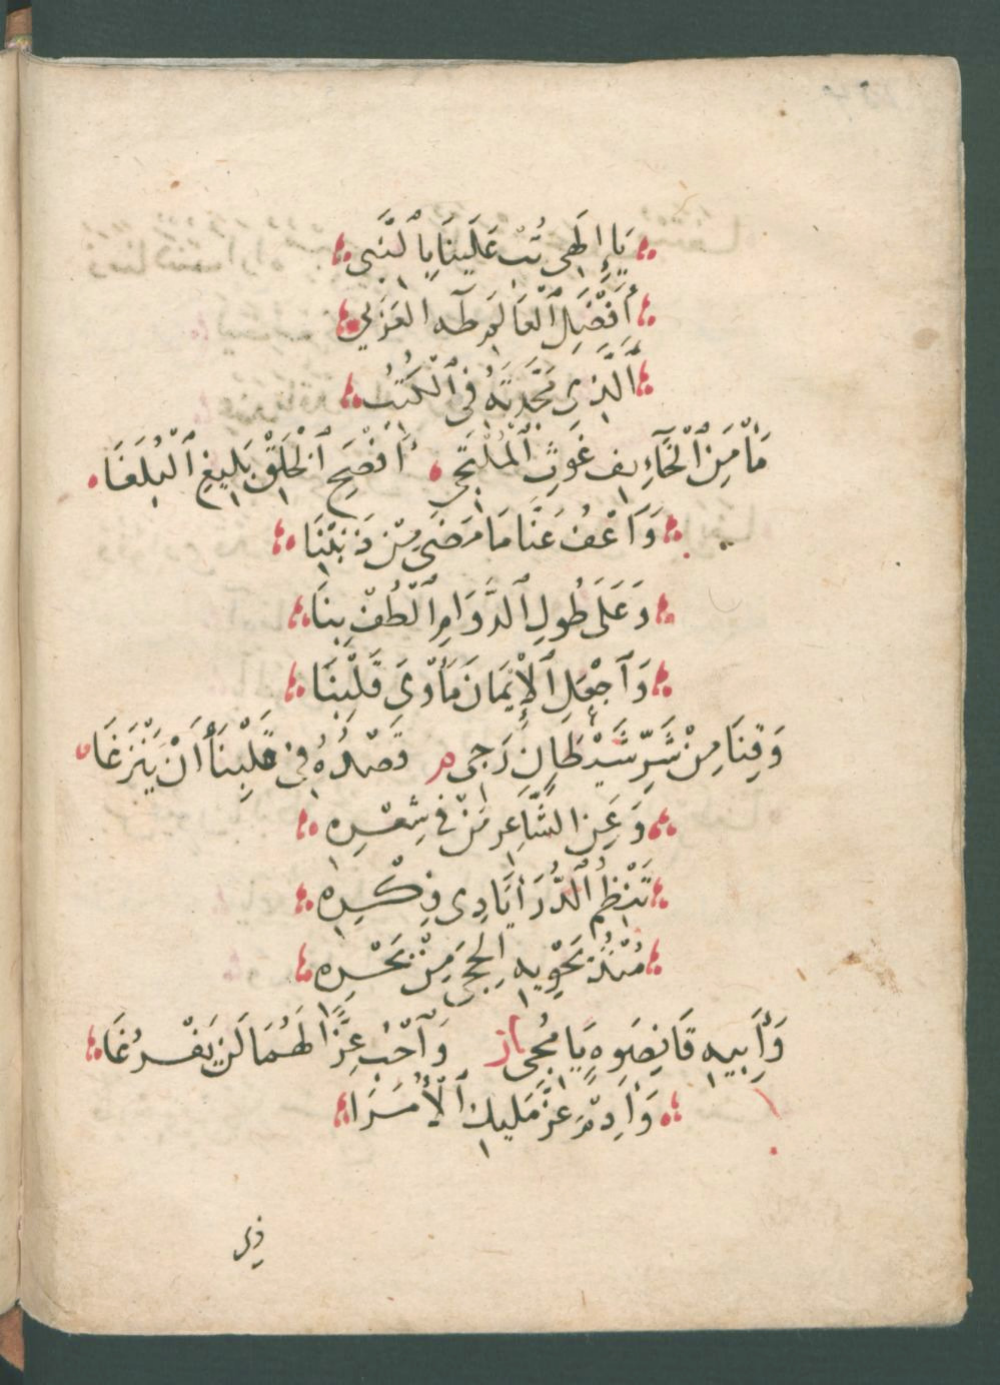 يَا إِلَهِي تُبْ عَلَيْنَا بِالنَّبِي
أَفْضَلِ الْعَالَمِ طَهَ الْعَرَبِي
الَّذِي مَجَّدْتَهُ فِي الْكُتُبِ
مَأْمَنِ الْخَآئِفِ غَوْثِ الْمُلْتَجِي أَفْصَحِ الْخَلْقِ بَلِيغِ الْبُلَغَا
وَاعْفُ عَنَّا مَا مَضَى مِنْ ذَنْبِنَا
وَعَلَى طُولِ الدَّوَامِ الْطُفْ بِنَا
وَاجْعَلِ الْإِيمَانَ مَأْوَى قَلْبِنَا
وَقِنَا مِنْ شَرِّ شَيْطَانٍ رَجِيم قَصْدُهُ فِي قَلْبِنَا أَنْ يَنْزَغَا
وَعَنِ الشَّاعِرِ مَنْ فِي شِعْرِهِ
تَنْظِمُ الدُّرَّ أَيَادِي فِكْرِهِ
مُنْذُ يَحْوِيهِ الْحِجَى مِنْ بَحْرِهِ
وَأَبِيهِ قَانِصَوْهٍ يَا مُجِيز وَاحْبُ عِزًّا لَهُمَا لَنْ يَفْرُغَا
وَأَدِمْ عِزَّ مَلِيكِ الْأُمَرَا
ذي